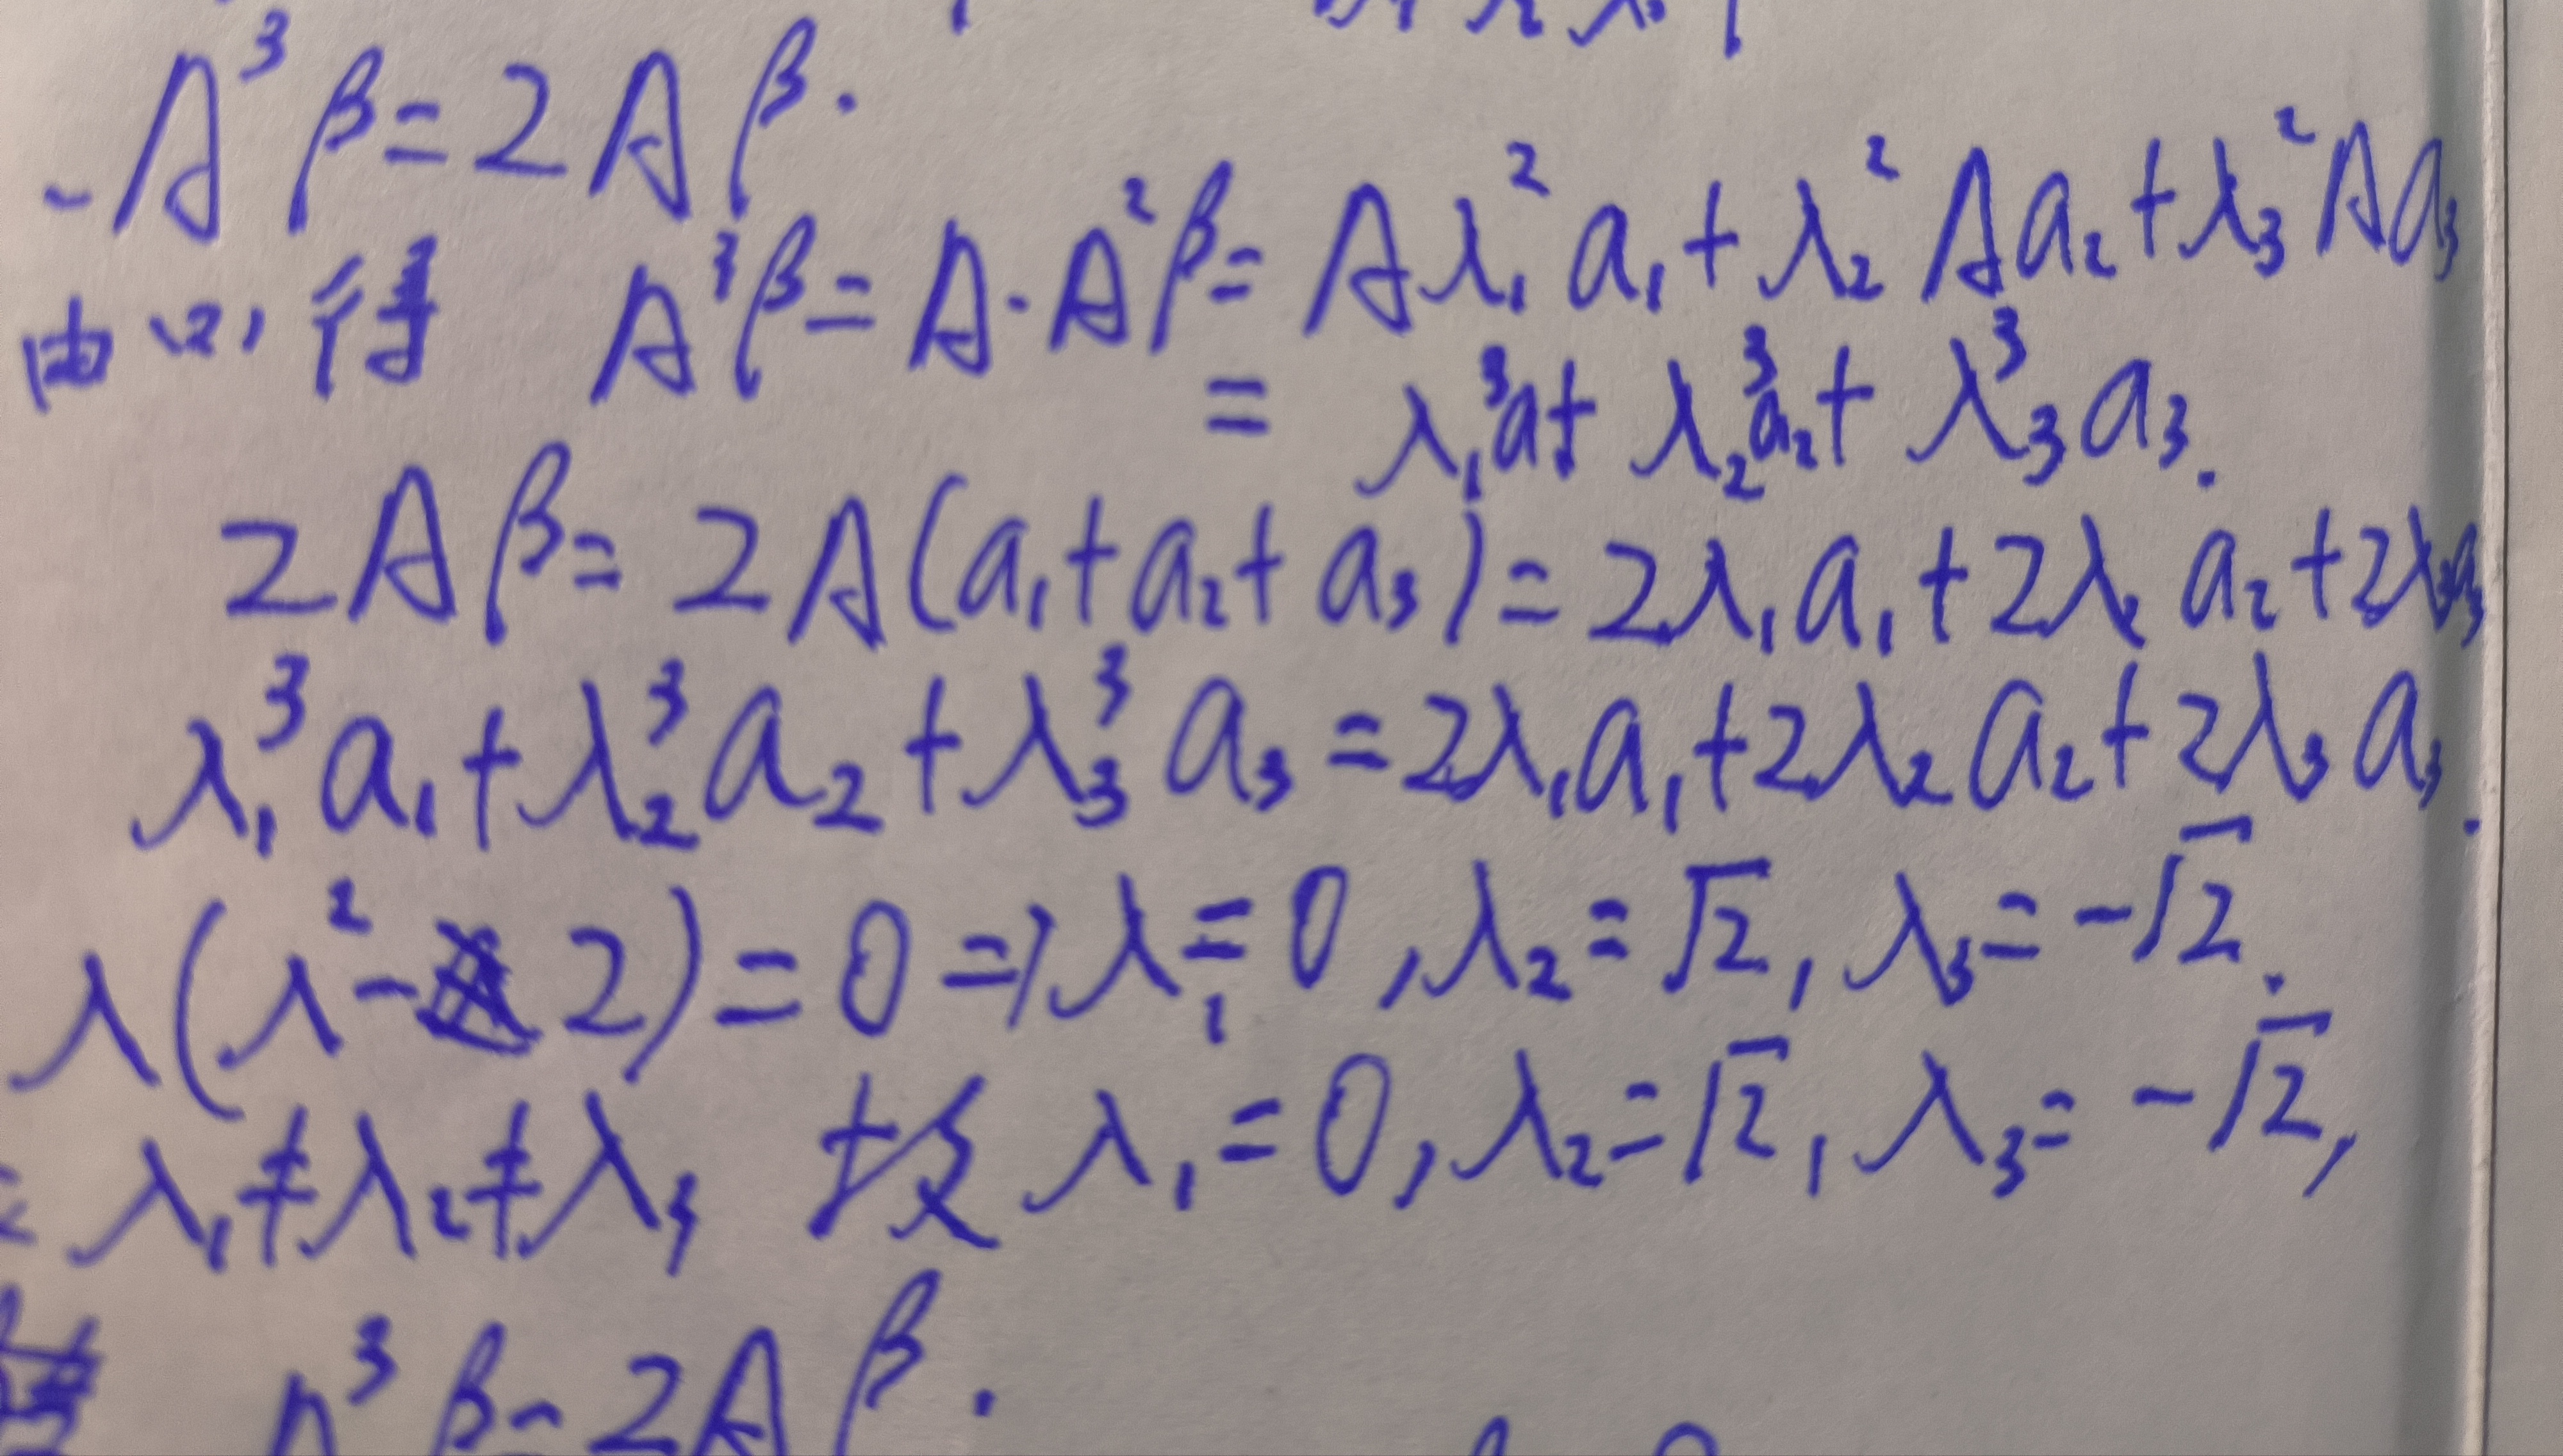 -A³β=2Aβ.
由(2)得 A³β=A·A²β=Aλ₁²a₁+λ₂²Aa₂+λ₃²Aa₃
= λ₁³a+λ₂³a₂+λ₃³a₃.
2Aβ=2A(a₁+a₂+a₃)=2λ₁a₁+2λ₂a₂+2λ₃a₃
λ₁³a₁+λ₂³a₂+λ₃³a₃=2λ₁a₁+2λ₂a₂+2λ₃a₃.
λ(λ²-2)=0⇒λ₁=0,λ₂=√2,λ₃=-√2.
λ₁≠λ₂≠λ₃ 故λ₁=0,λ₂=√2,λ₃=-√2,
A³β=2Aβ.